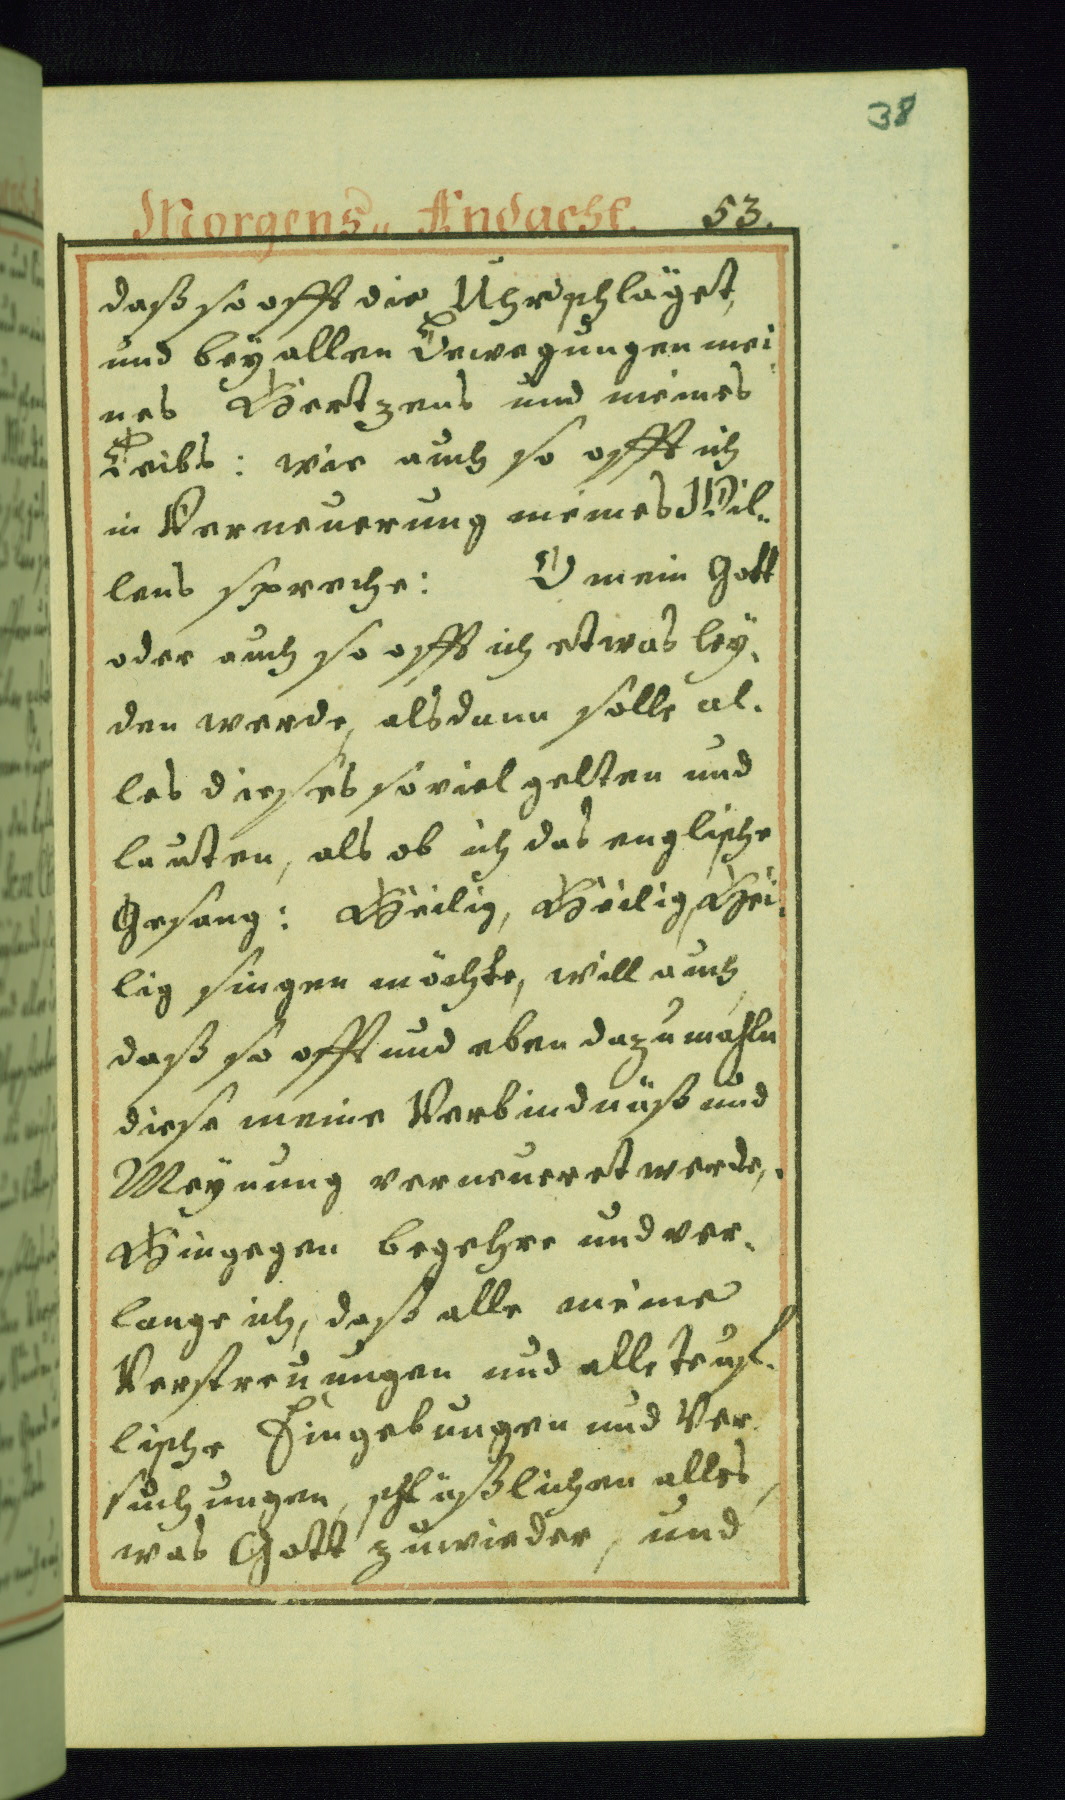 38
Morgens„ Andacht. 53.
daß so offt die Uhr schläget,
und bey allen Bewegungen mei
nes Hertzens und meines
Leibs: wie auch so offt ich
in Verneuerung meines Wil„
lens spreche: O mein Gott
oder auch so offt ich etwas ley,
den werde, alsdann solle al.
les dieses soviel gelten und
lauten, als ob ich das englische
Gesang: Heilig, Heilig, Hei,
lig singen möchte, will auch
daß so offt und eben dazumahln
diese meine Verbindnüß und
Meynung verneueret werde,.
Hingegen begehre und ver„
lange ich, daß alle meine
Verstreuungen und alle teuf„
lische Eingebungen und Ver
suchungen, schlüßlichen alles,
was Gott zuwieder, und